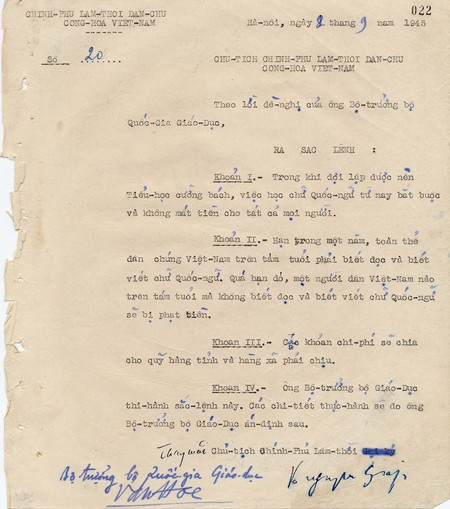 022
CHINH-PHU LAM-THOI DAN-CHU
CONG-HOA VIET-NAM
Số 20
Hà-nội, ngày 8 tháng 9 năm 1945
CHU-TICH CHINH-PHU LAM-THOI DAN-CHU
CONG-HOA VIET-NAM
Theo lời đề-nghị của ông Bộ-trưởng bộ
Quốc-Gia Giáo-Dục,
RA SAC LENH :
Khoản I.- Trong khi đợi lập được nền
Tiểu-học cưỡng bách, việc học chữ Quốc-ngữ từ nay bắt buộc
và không mất tiền cho tất cả mọi người.
Khoản II.- Hạn trong một năm, toàn thể
dân chúng Việt-Nam trên tám tuổi phải biết đọc và biết
viết chữ Quốc-ngữ. Quá hạn đó, một người dân Việt-Nam nào
trên tám tuổi mà không biết đọc và biết viết chữ Quốc-ngữ
sẽ bị phạt tiền.
Khoản III.- Các khoản chi-phí sẽ chia
cho quỹ hàng tỉnh và hàng xã phải chịu.
Khoản IV.- Ông Bộ-trưởng bộ Giáo-Dục
thi-hành sắc-lệnh này. Các chi-tiết thực-hành sẽ do ông
Bộ-trưởng bộ Giáo-Dục ấn-định sau.
Chủ-tịch Chính-Phủ Lâm-thời
Bộ trưởng bộ Quốc gia Giáo-dục